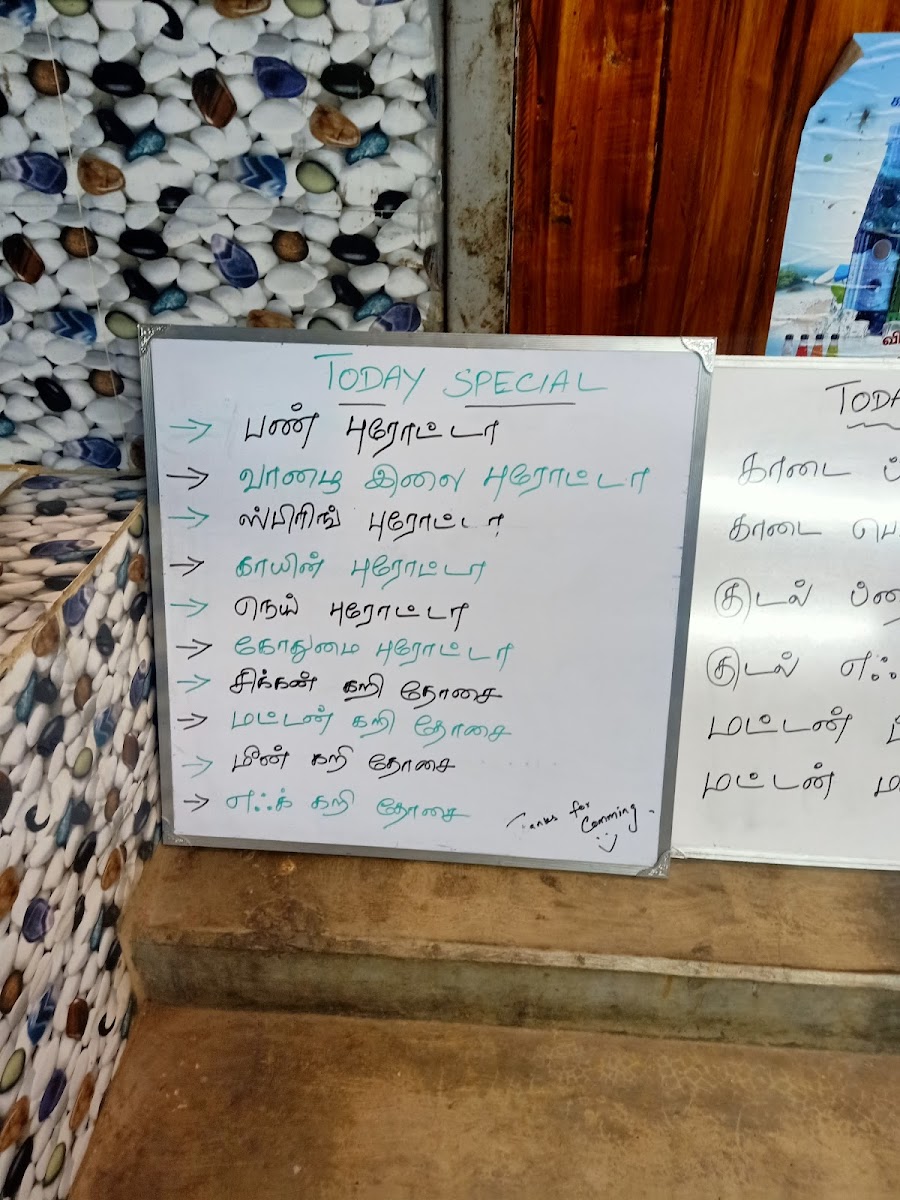 TODAY SPECIAL
→ பண் புரோட்டா
→ வாழை இலை புரோட்டா
→ ஸ்பிரிங் புரோட்டா
→ காயின் புரோட்டா
→ நெய் புரோட்டா
→ கோதுமை புரோட்டா
→ சிக்கன் கறி தோசை
→ மட்டன் கறி தோசை
→ மீன் கறி தோசை
→ எஃக் கறி தோசை
Tanks for
Comming.
TODA
காடை
காடை பெ
குடல்
குடல் எஃ
மட்டன்
மட்டன் ம
வி